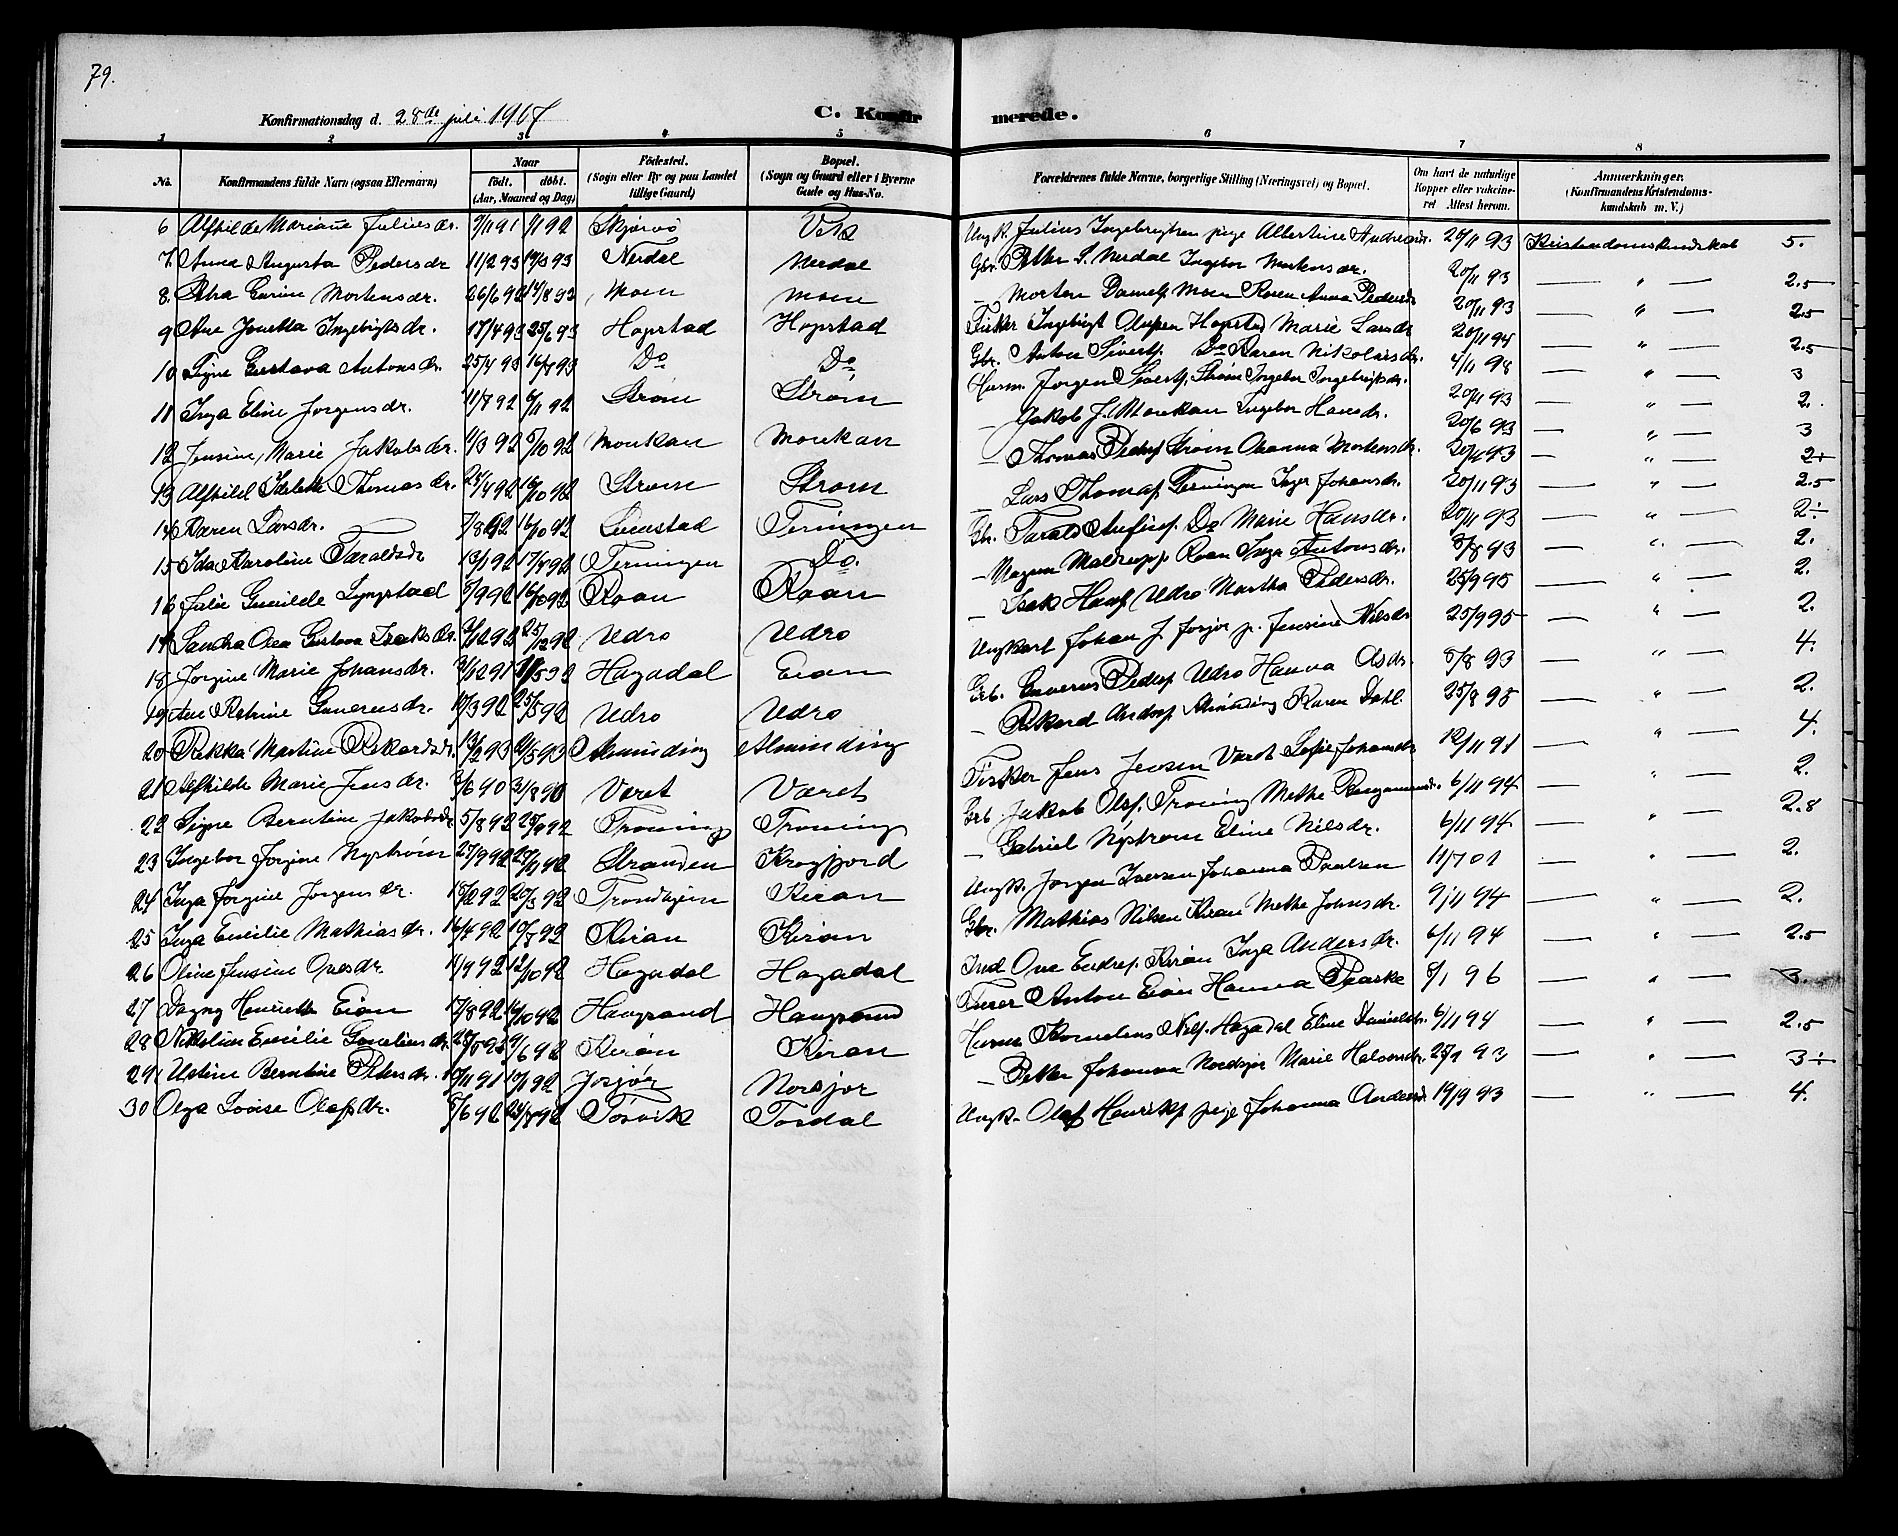 79.
Konfirmationsdag d. 28de juli 1907
C. Konfirmerede.
1 2 3 4 5 6 7 8
No.
Konfirmandens fulde Navn (ogsaa Efternavn)
Naar
født. døbt.
(Aar, Maaned og Dag)
Fødested.
(Sogn eller By og paa Landet
tillige Gaard)
Bopæl.
(Sogn og Gaard eller i Byerne
Gade og Hus-No.
Forældrenes fulde Navne, borgerlige Stilling (Næringsvei) og Bopæl.
Om havt de naturlige
Kopper eller vaccine-
ret Attest herom.
Anmærkninger.
(Konfirmandens Kristendoms-
kundskab m. V.)
6 Alfhilde Mariane Julius dr. Skjørvø Ungk. Julius Ingebrigtsen pige Albertine 20/11 93 Kristendomskundskab 5.
7. Augusta Peders dr 11/2 93 Nerdal Nerdal Gbr. Nerdal Ingebor Mortens dr. 20/11 93 — " — 2.5
8. Mortens dr. 26/6 92 Moen Moen — Morten Moen Karen Anna Peders dr 20/11 93 — " — 2.5
9 Ane Jonetta Ingebrigts dr. 17/4 93 25/6 93 Hopstad Hopstad Fisker Ingebrigt Hopstad Marie Lars dr 20/11 94 — " — 2.5
10 Signe Gustava Antons dr. 25/4 93 Do Do Gbr. Anton Siverts. Do Karen Nikolais dr. 4/11 98 — " — 3
11 Inga Eline Jørgens dr. 11/8 92 6/11 92 Strøm Strøm Husm. Jørgen Siverts. Strøm Ingebor Ingebrigts dr. 20/11 93 — " — 2.
12 Jensine Marie Jakobs dr. 4/3 92 5/10 92 Monkan Monkan — Jakob J. Monkan Ingebor Hans dr. 20/6 93 — " — 3
13 Alfhild Thomas dr. 16/10 92 Strøm Strøm — Thomas Peders. Strøm Mortens dr. — " — 2÷
14 Karen Lars dr. 7/8 92 16/10 92 Teningen — Lars Thomas. Terningen Inger Johans dr. 20/11 93 — " — 2.5
15 Ida Karoline Taralds dr 13/1 92 17/8 92 Terningen Do. Gbr. Tarald Do Marie Hans dr. 20/11 93 — " — 2÷
16 Julie Gunilde Lyngstad 5/9 92 16/10 92 Roan Roan — Magnus Roan Inga Antons dr. 8/8 93 — " — 2.
17 Sandra Gustava Isaks dr. 25/12 92 Udro Udro — Isak Hans. Udro Martha Peders dr. 25/9 95 — " — 2.
18 Jørgine Marie Johans dr. Hagadal Eian Ungkarl Johan J. p. Jensine Nils dr 25/9 95 — " — 2.
19 Ane Petrine Gunerius dr. 10/3 92 25/5 92 Udro Udro Gb. Gunerus Peders. Udro Hanna Ols dr. 8/8 93 — " — 4.
20 Rikka Martine Rikards dr. Alminding Alminding — Rikard Anders. Alminding Karen Dahl 25/8 95 — " — 2.
21 Alfhilde Marie Jens dr. 3/8 90 Været Været Fisker Jens Jensen Været Sofie Johans dr 12/11 91 — " — 4.
22 Signe Berntine Jakobs dr 5/8 92 Troning Troning Gb Jakob Ols. Troning Methe Benjamins dr. 6/11 94 — " — 2.
23 Ingebor Jørgine Nystrøm 27/9 92 Stranden Krogfjord — Gabriel Nystrøm Eline Nils dr. 6/11 94 — " — 2.8
24 Inga Jørgine Jørgens dr. 15/2 92 20/3 92 Trondhjem Kiran Ungk. Jørgen Iversen Johanna Paulsen 11/7 01 — " — 2.
25 Inga Emilie Mathias dr. 16/4 92 10/7 92 Kiran Kiran Gbr. Mathias Nilsen Kiran Methe Johns dr. 9/11 94 — " — 2.
26 Oline Jensine Oves dr. 12/10 92 Hagadal Hagadal Ind Ove Endres. Kiran Inga Anders dr. 6/11 94 — " — 2.5
27 Dagny Henriette Eian 17/8 92 Haugsand Haugsand Anton Eian Hanna 8/1 96 — " — 3.
28 Nikoline Emilie 9/6 92 Kiran Kiran Husm Kornelius Nils. Hagadal Eline Daniels dr. 6/11 94 — " — 2.5
29 Berntine Peters dr. 10/11 91 10/1 92 Josjør Norsjør — Petter Johannsen Nordsjør Marie 25/9 93 — " — 3÷
30 Olga Lovise Olafs dr. Tørvik Tosdal Ungk. Olaf Henriks. pige Johanna 19/9 93 — " — 4.